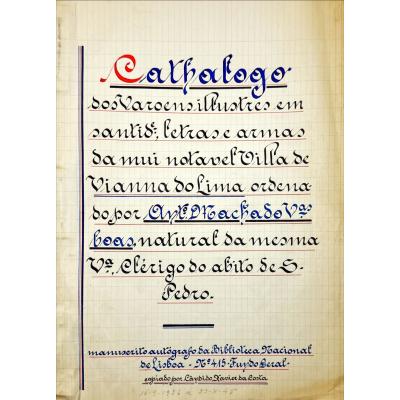 Cathalogo
dos Varoens illustres em
santide, letras e armas
da mui notavel Villa de
Vianna do Lima ordena
do por Anto. Machado Vas
boas, natural da mesma
Va. Clérigo do abito de S.
Pedro.
manuscrito autógrafo da Biblioteca Nacional
de Lisboa - Nº 415 - Fundo Geral -
copiado por Cândido Xavier da Costa